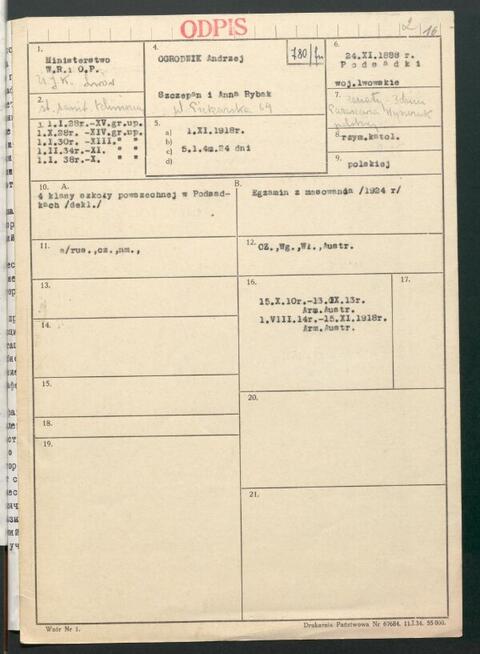 ODPIS
2 16
1.
Ministerstwo
W.R. i O.P.
U.J.K. Lwów
4.
OGRODNIK Andrzej
780
Szczepan i Anna Rybak
ul. Piekarska 69
6.
24.XI.1888 r.
Podsadki
woj.lwowskie
2.
st.
7.
żonaty
3. 1.I.28r.-XV.gr.up.
1.X.28r. -XIV.gr.up.
1.I.30r. -XIII. " "
1.II.34r.-XI. " "
1.I. 38r.-X. " "
5.
a) 1.XI.1918r.
b)
c) 5.1.4m.24 dni
d)
8.
rzym.katol.
9.
polskiej
10. A.
4 klasy szkoły powszechnej w Podsad-
kach /dekl./
B.
Egzamin z masowania /1924 r/
11.
a/rus.,cz.,nm.,
12.
CZ.,Wg.,Wł.,Austr.
13.
14.
15.
16.
15.X.10r.-13.IX.13r.
Arm.Austr.
1.VIII.14r.-15.XI.1918r.
Arm.Austr.
17.
18.
19.
20.
21.
Wzór Nr 1.
Drukarnia Państwowa Nr 67684. 11.I.34. 55 000.